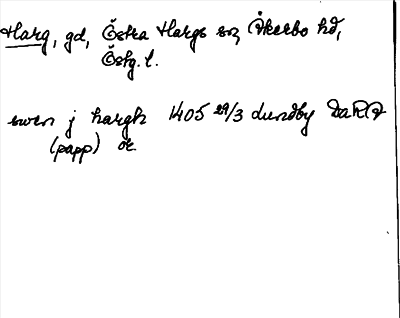 Harg, gd, Östra Hargs sn, Åkerbo hd,
Östg. l.
swen j hargh 1405 29/3 Lundby DaRA
(papp) or.